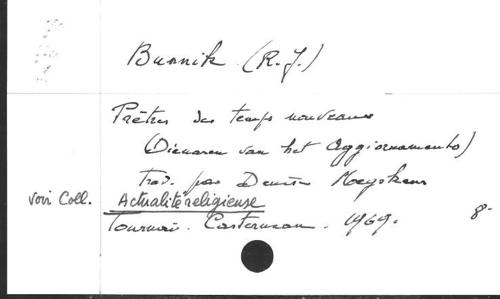 Bunnik (R.J.)
Prêtres des temps nouveaux
(Dienaren van het Aggiornamento)
Trad. par Denise Moeyskens
voir Coll. Actualité religieuse
Tournai. Casterman. 1969. 8-